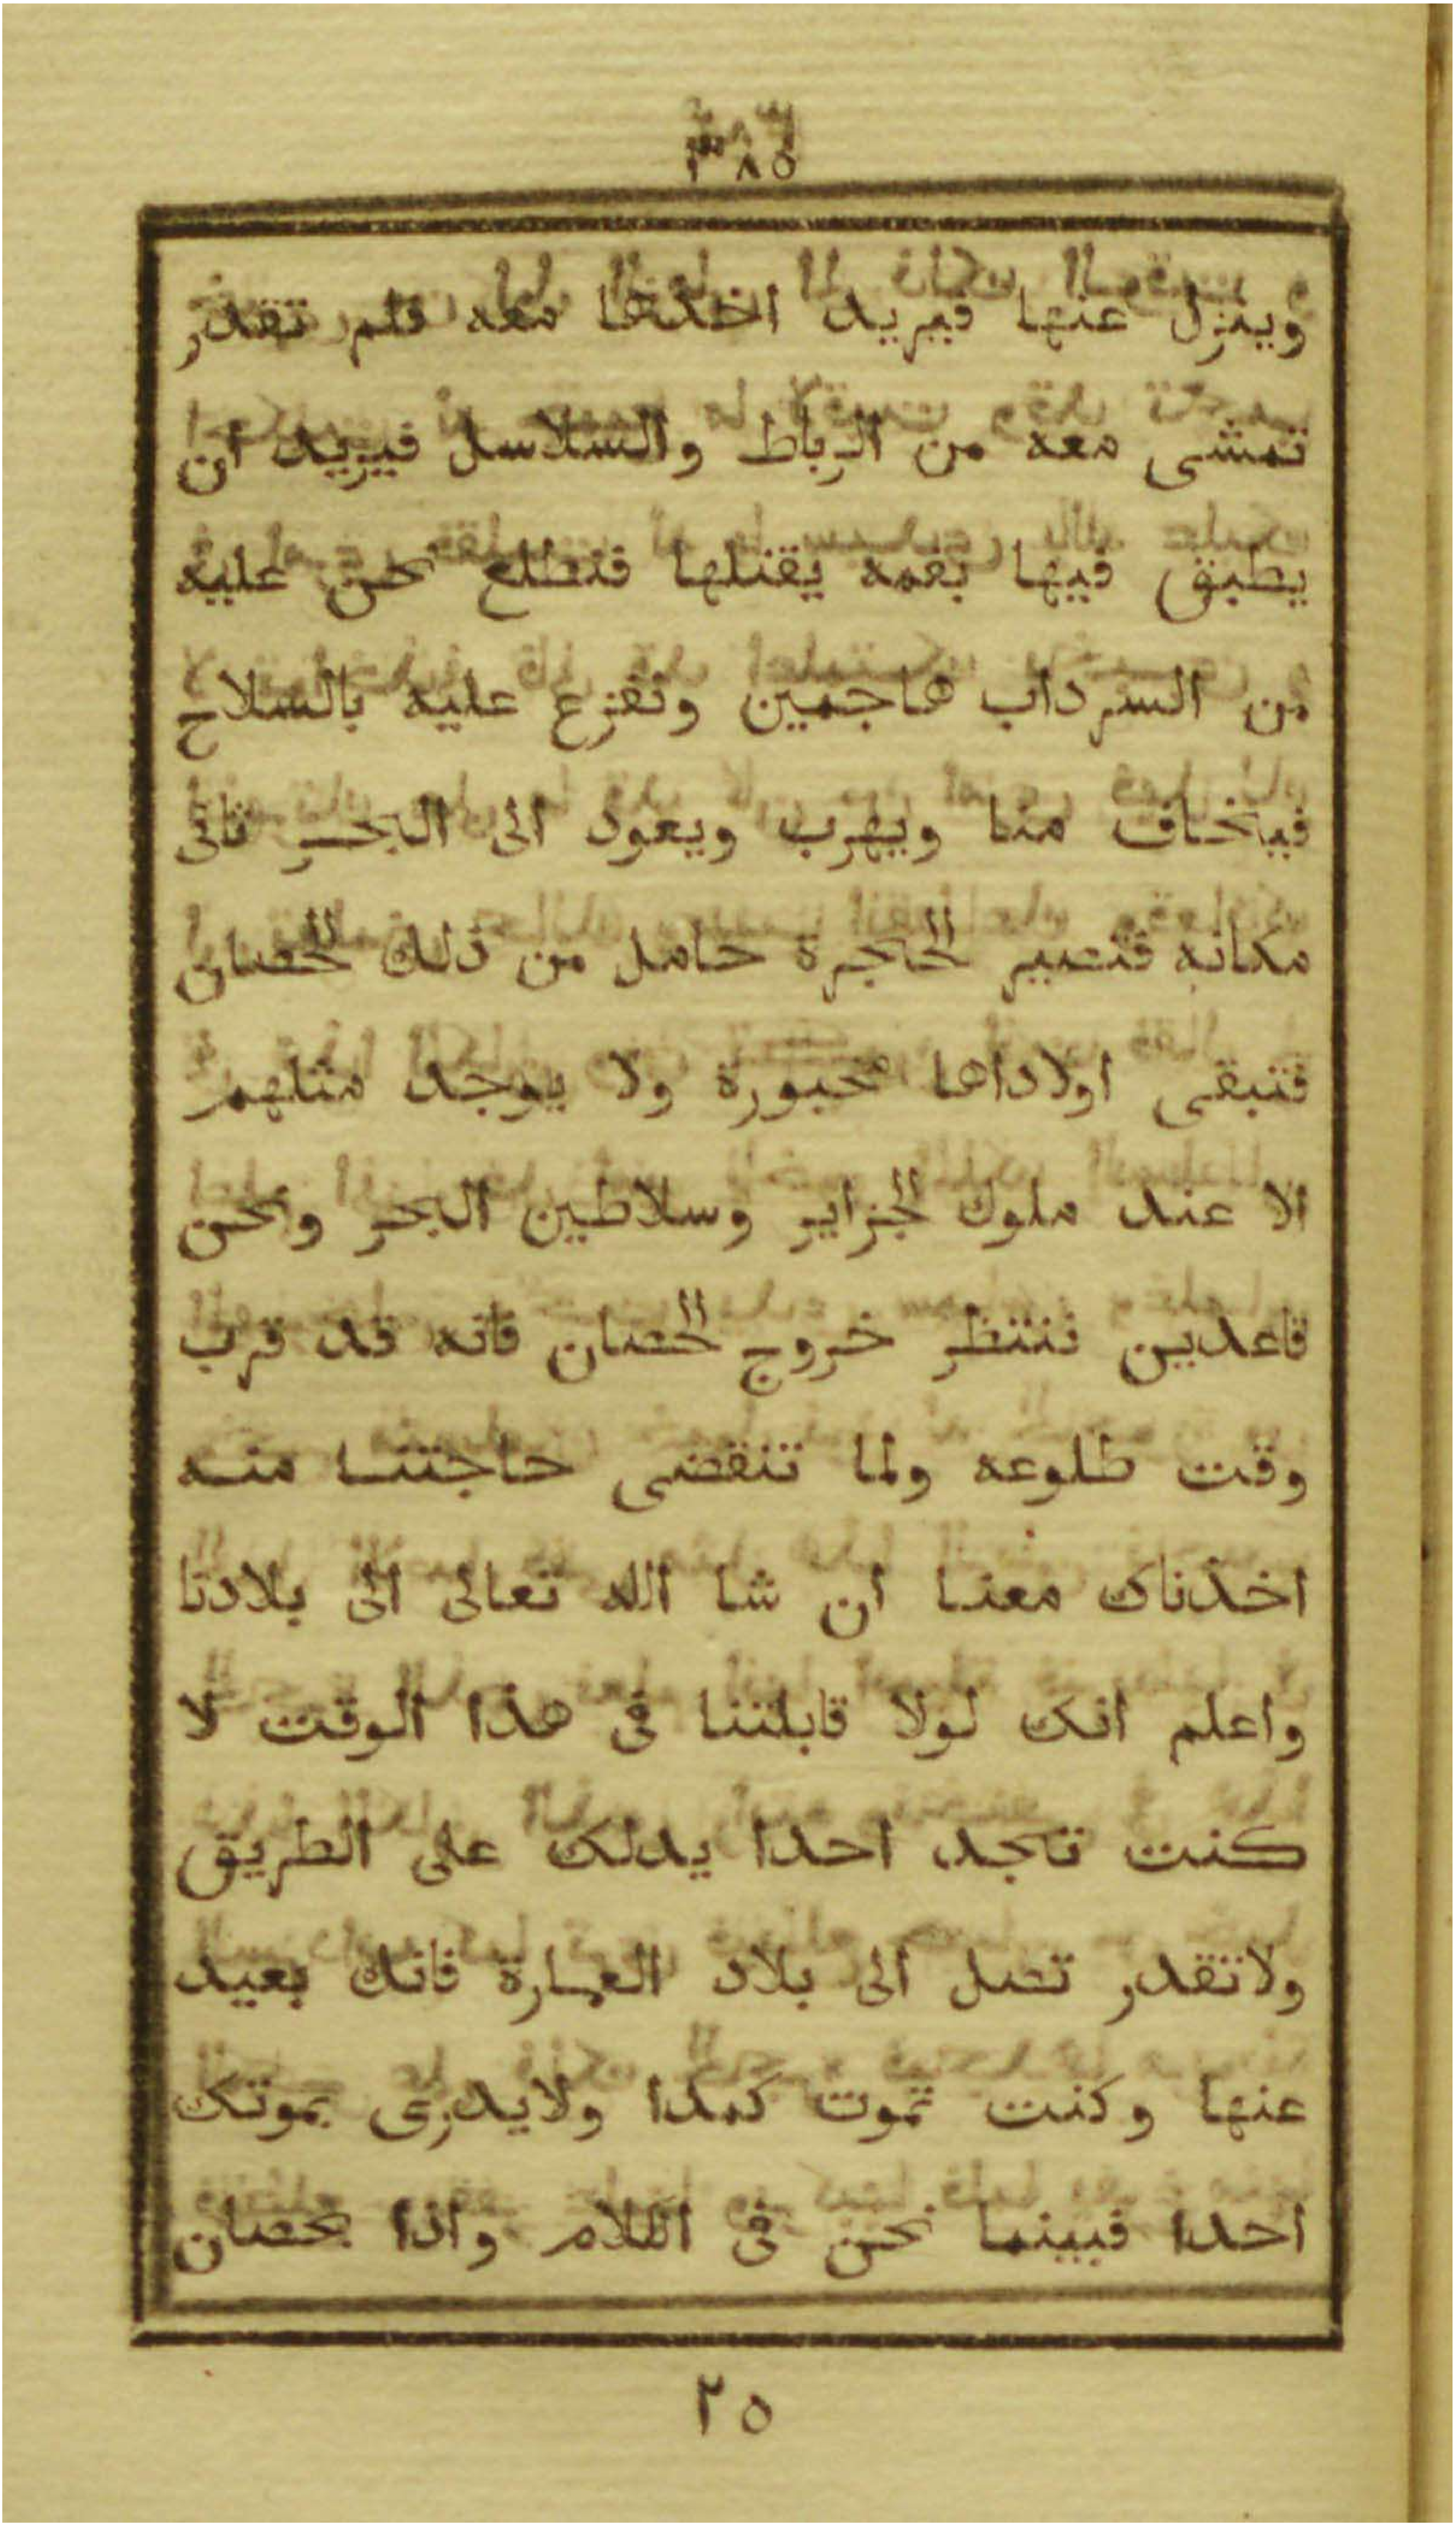 ٣٨٥
وينزل عنها فيريد اخذها معه فلم تقدر
تمشى معه من الرباط والسلاسل فيريد ان
يطبق فيها بفمه يقتلها فنطلع نحن عليه
من السرداب هاجمين ونفزع عليه بالسلاح
فيخاف منا ويهرب ويعود الى البحر ثانى
مكانه فتصير الحاجرة حامل من ذلك الحصان
فتبقى اولاداها مخبورة ولا يوجد مثلهم
الا عند ملوك الجزاير وسلاطين البحر ونحن
قاعدين ننتظر خروج الحصان فانه قد قرب
وقت طلوعه ولما تنقضى حاجتنا منه
اخذناك معنا ان شا الله تعالى الى بلادنا
واعلم انك لولا قابلتنا فى هذا الوقت لا
كنت تجد احدا يدلك على الطريق
ولاتقدر تصل الى بلاد العمارة فانك بعيد
عنها وكنت تموت كمدا ولايدرى بموتك
احدا فبينما نحن فى الكلام واذا بحصان
٢٥